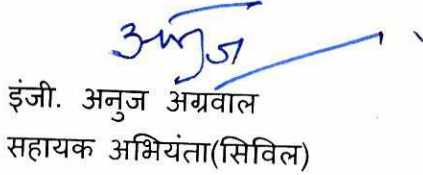 अनुज
इंजी. अनुज अग्रवाल
सहायक अभियंता(सिविल)